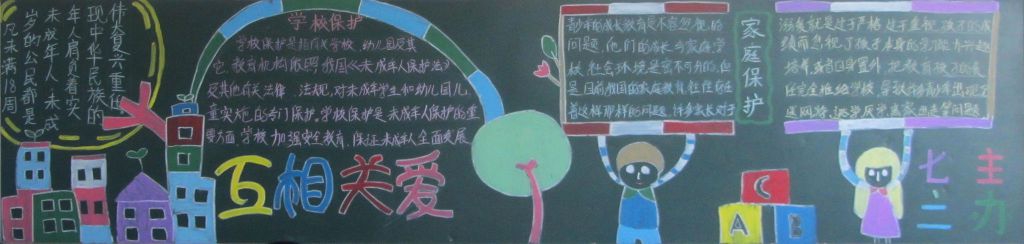 凡未满18周
岁的公民都是
未成年人。未成
年人肩负着实
现中华民族的
伟大复兴重任
学校保护
学校保护是指有关学校、幼儿园及其
它教育机构依照我国《未成年人保护法》
及其他有关法律、法规,对未成年学生和幼儿园儿
童实施的专门保护。学校保护是未成年人保护的重
要方面,学校加强安全教育,保证未成年人全面发展
互相关爱
的成长教育是不容忽视的
问题,他们的成长与家庭学
校社会环境是密不可分的,但
是目前我国的家庭教育往往存在
着这样那样的问题,许多家长对于
家庭保护
溺爱就是过于严格,过于重视孩子的成
绩而忽视了孩子本身的
培养,或者自身置外,把教育孩子的责
任完全推给学校,导致许多青少年出现了
迷网游、逃学厌学
C
A B
七二
主办